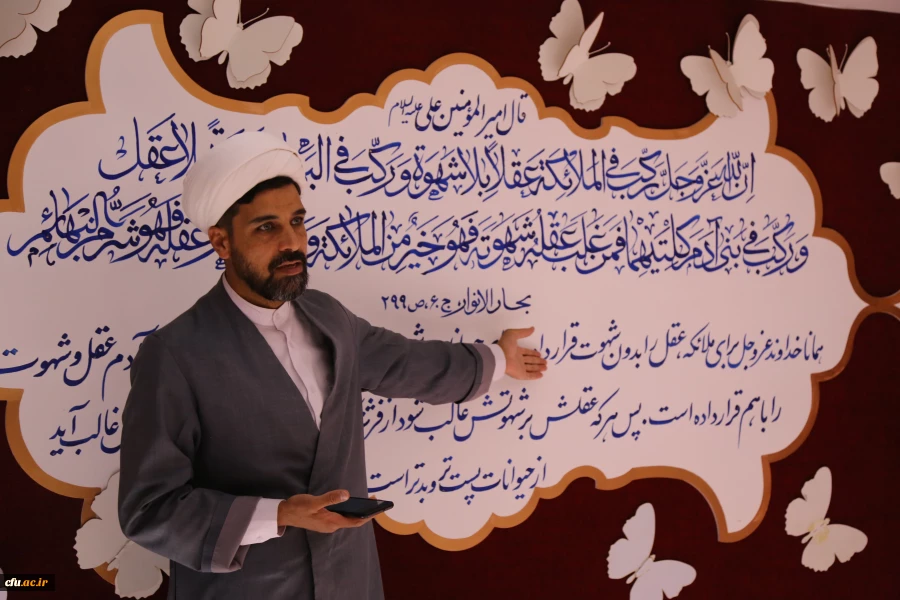 قال امیرالمؤمنین علی علیه‌السلام
اِنّ اللّهَ عَزّ وَجلّ رَكّبَ فِی المَلائكَةِ عَقلاً بِلا شَهْوَةٍ وَ رَكّبَ فِی البَ لاعَقل
وَ رَكّبَ فی بَنی آدَمَ كِلتَیهِما فَمَن غَلَبَ عَقلُهُ شَهْوَتَهُ فَهُوَ خَیرٌ مِنَ المَلائكَةِ وَ عَقلَهُ فَهُوَ شَرٌّ مِنَ البَهائِم
بحار الانوار ج ۶۰، ص ۲۹۹
همانا خداوند عزوجل برای ملائکه، عقل را بدون شهوت قرارداد آدم عقل و شهوت
را با هم قرار داده است. پس هر که عقلش بر شهوتش غالب شود از غالب آید
از حیوانات پست تر و بدتر است
cfu.ac.ir